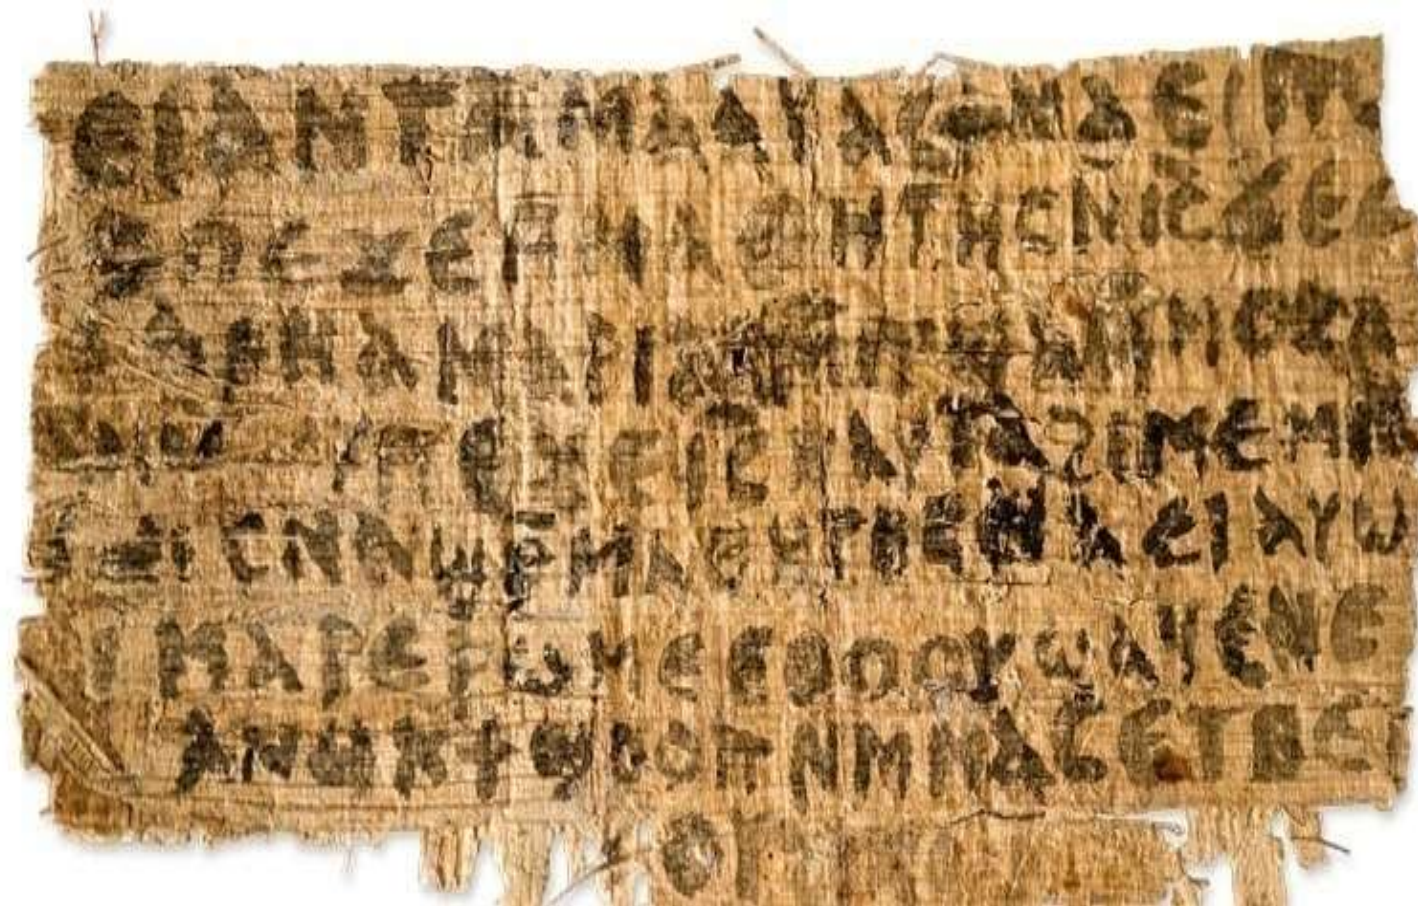 ⲉⲓ ⲁⲛ ⲧⲁⲙⲁⲁⲩ ⲁⲥϯ ⲛⲁⲉⲓ ⲡⲱ
ϫⲉ ⲡⲉϫⲉ ⲙⲙⲁⲑⲏⲧⲏⲥ ⲛⲓⲥ ϫⲉ ⲥ
ⲁⲣⲛⲁ ⲙⲁⲣⲓⲁⲙ ⲙⲡϣⲁ ⲙⲙⲟⲥ ⲁ
ⲡⲉϫⲉ ⲓⲥ ⲛⲁⲩ ⲧⲁϩⲓⲙⲉ ⲙⲛ
ⲥⲛⲁϣⲣⲙⲁⲑⲏⲧⲏⲥ ⲛⲁⲉⲓ ⲁⲩⲱ
ⲓ ⲙⲁⲣⲉⲣⲱⲙⲉ ⲉⲑⲟⲟⲩ ϣⲁϥⲉ ⲛⲉ
ⲁⲛⲟⲕ ϯϣⲟⲟⲡ ⲛⲙⲙⲁⲥ ⲉⲧⲃⲉ